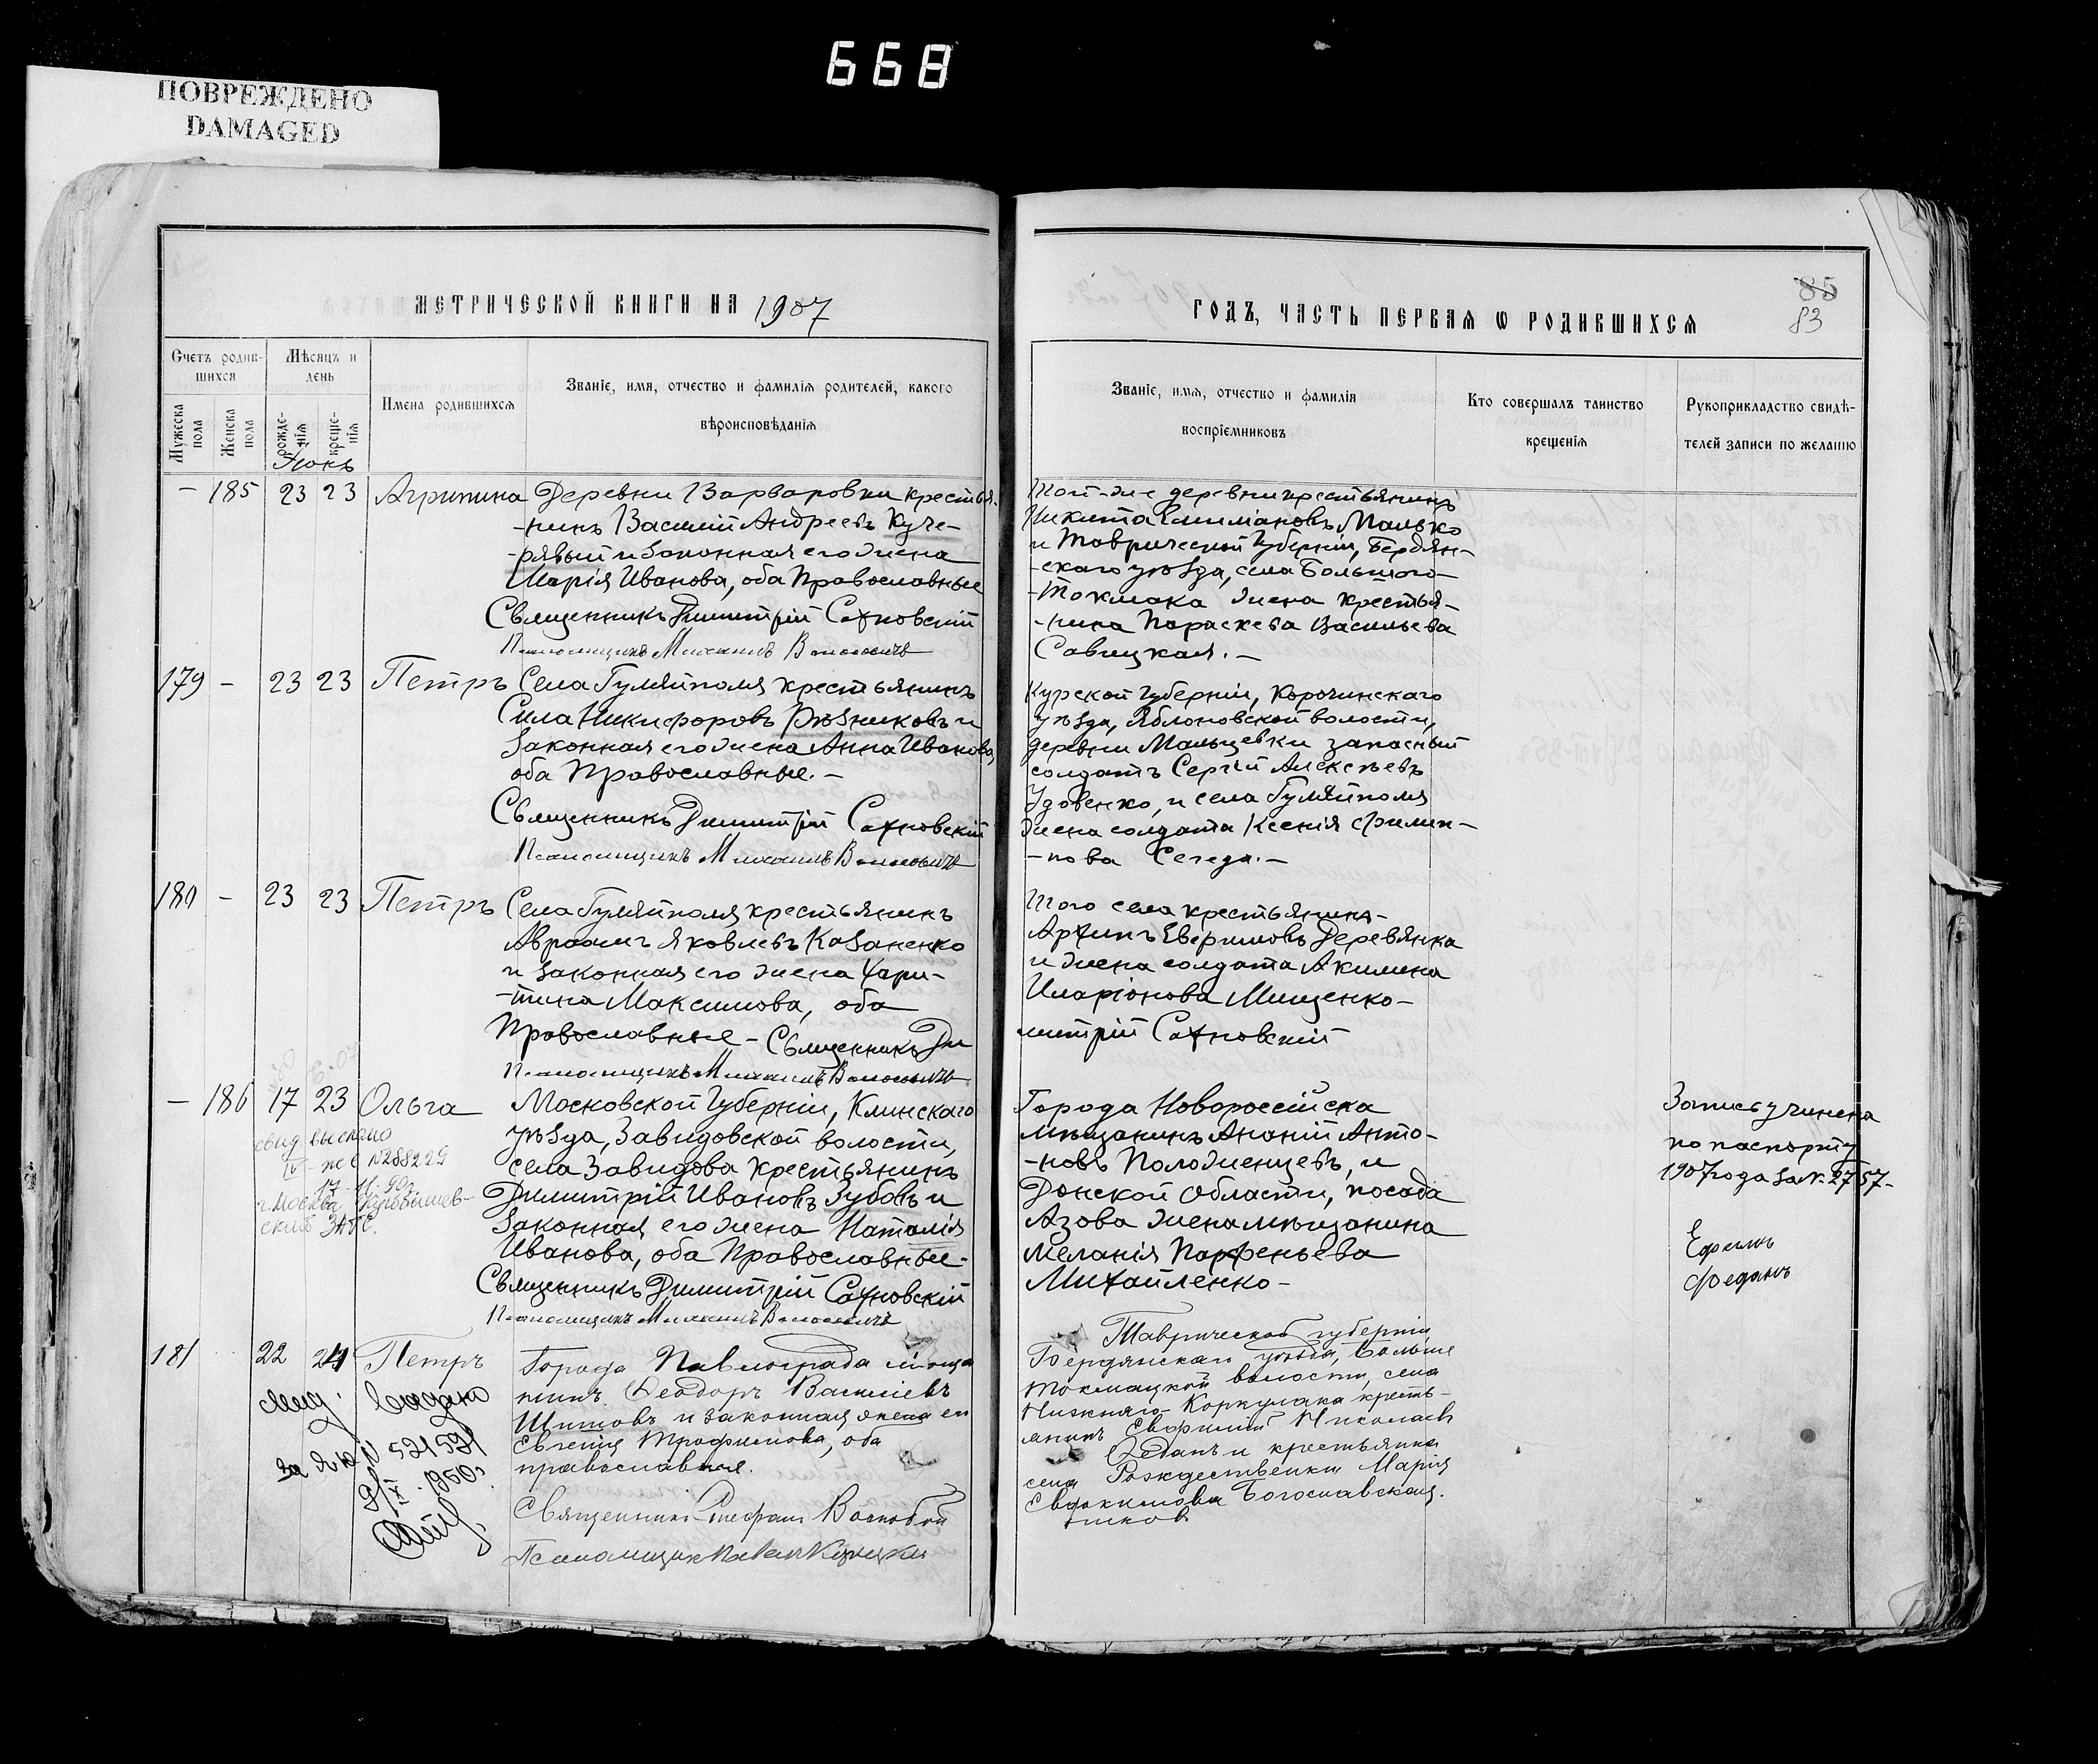 668
ПОВРЕЖДЕНО
DAMAGED
МЕТРИЧЕСКОЙ КНИГИ НА 1907
Счетъ родив-
шихся
Мѣсяцъ и
день
Мужеска пола
Женска пола
рожде-
нія
креще-
нія
Имена родившихся
Званіе, имя, отчество и фамилія родителей, какого
вѣроисповѣданія
Іюнь
— 185 23 23 Агрипина
Деревни Варваровки крестья-
-нинъ Василій Андреевъ Куче-
-рявый и законная его жена
Марія Иванова, оба Православные
Священникъ Димитрій Сахновскій
Псаломщикъ Михаилъ
179 — 23 23 Петръ
Села Гуляйполя крестьянинъ
Сила Никифоровъ Рѣзниковъ и
законная его жена Анна Иванова,
оба Православные. —
Священникъ Димитрій Сахновскій
Псаломщикъ Михаилъ
180 — 23 23 Петръ
Села Гуляйполя крестьянинъ
Авраамъ Яковлевъ Казаненко
и законная его жена Хари-
-тина Максимова, оба
Православные — Священникъ Ди
Псаломщикъ Михаилъ
— 186 17 23 Ольга
свид выслано
IV-
17-II-90г.
г. Москва Куйбышев-
ский ЗАГС.
Московской Губерніи, Клинскаго
уѣзда, Завидовской волости,
села Завидова крестьянинъ
Димитрій Ивановъ Зубовъ и
законная его жена Наталія
Иванова, оба Православные.
Священникъ Димитрій Сахновскій
Псаломщикъ Михаилъ
181 22 24 Петръ
выдано
за № 521521
1950г.
Города Павлограда мѣща
нинъ Ѳеодоръ Василіевъ
Шитовъ и законная жена его
Евгенія Трофимова, оба
православные.
Священникъ Стефанъ
Псаломщикъ
ГОДЪ, ЧАСТЬ ПЕРВАЯ О РОДИВШИХСЯ
85
83
Званіе, имя, отчество и фамилія
воспріемниковъ
Кто совершалъ таинство
крещенія
Рукоприкладство свидѣ-
телей записи по желанію
Той-же деревни крестьянинъ
Никита Малько
и Таврической Губерніи, Бердян-
-скаго уѣзда, села Большого-
-Токмака жена крестья-
-нина Параскева Васильева
Савицкая. —
Курской Губерніи, Корочинскаго
уѣзда, Яблоновской волости,
деревни Мальцевки запасный
солдатъ Сергій Алексѣевъ
Удовенко, и села Гуляйполя
жена солдата Ксенія Филип-
-пова Сегеда. —
Того села крестьянинъ
Архипъ Деревянка
и жена солдата Акилина
Иларіонова Мищенко —
митрій Сахновскій
Города Новороссійска
мѣщанинъ Ананій Анто-
-новъ Положенцевъ, и
Донской Области, посада
Азова жена мѣщанина
Меланія Парфеньева
Михайленко —
Запись учинена
по паспорту
1907 года за № 2757-
Ефимъ
Феданъ
Таврической губерніи
Бердянскаго уѣзда, Больше
Токмацкой волости, села
Нижняго-Коркулака кресть-
янинъ Евфимій Николаевъ
Ѳеданъ и крестьянка
села Рождественки Марія
Евдокимова Богославская.